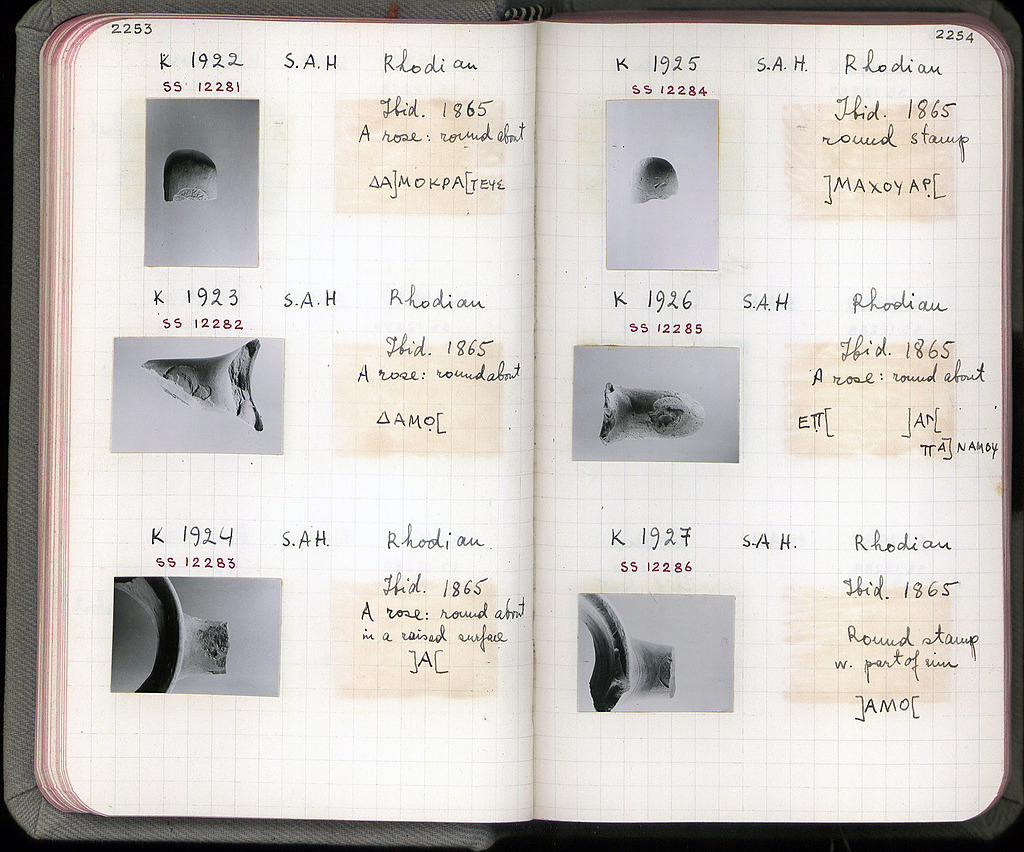 2253
K 1922 S.A.H Rhodian
SS 12281
Ibid. 1865
A rose: round about
ΔΑ]ΜΟΚΡΑ[ΤΕΥΣ
K 1923 S.A.H Rhodian
SS 12282
Ibid. 1865
A rose: round about
ΔΑΜΟ̣[
K 1924 S.A.H. Rhodian.
SS 12283
Ibid. 1865
A rose: round about
in a raised surface
]Α[
2254
K 1925 S.A.H. Rhodian
SS 12284
Ibid. 1865
round stamp
]ΜΑΧΟΥ ΑΡ̣[
K 1926 S.A.H Rhodian
SS 12285
Ibid. 1865
A rose: round about
ΕΠ̣[ ]ΑΓ[
ΠΑ]ΝΑΜΟΥ
K 1927 S.A.H. Rhodian
SS 12286
Ibid. 1865
Round stamp
w. part of rim
]ΑΜΟ[